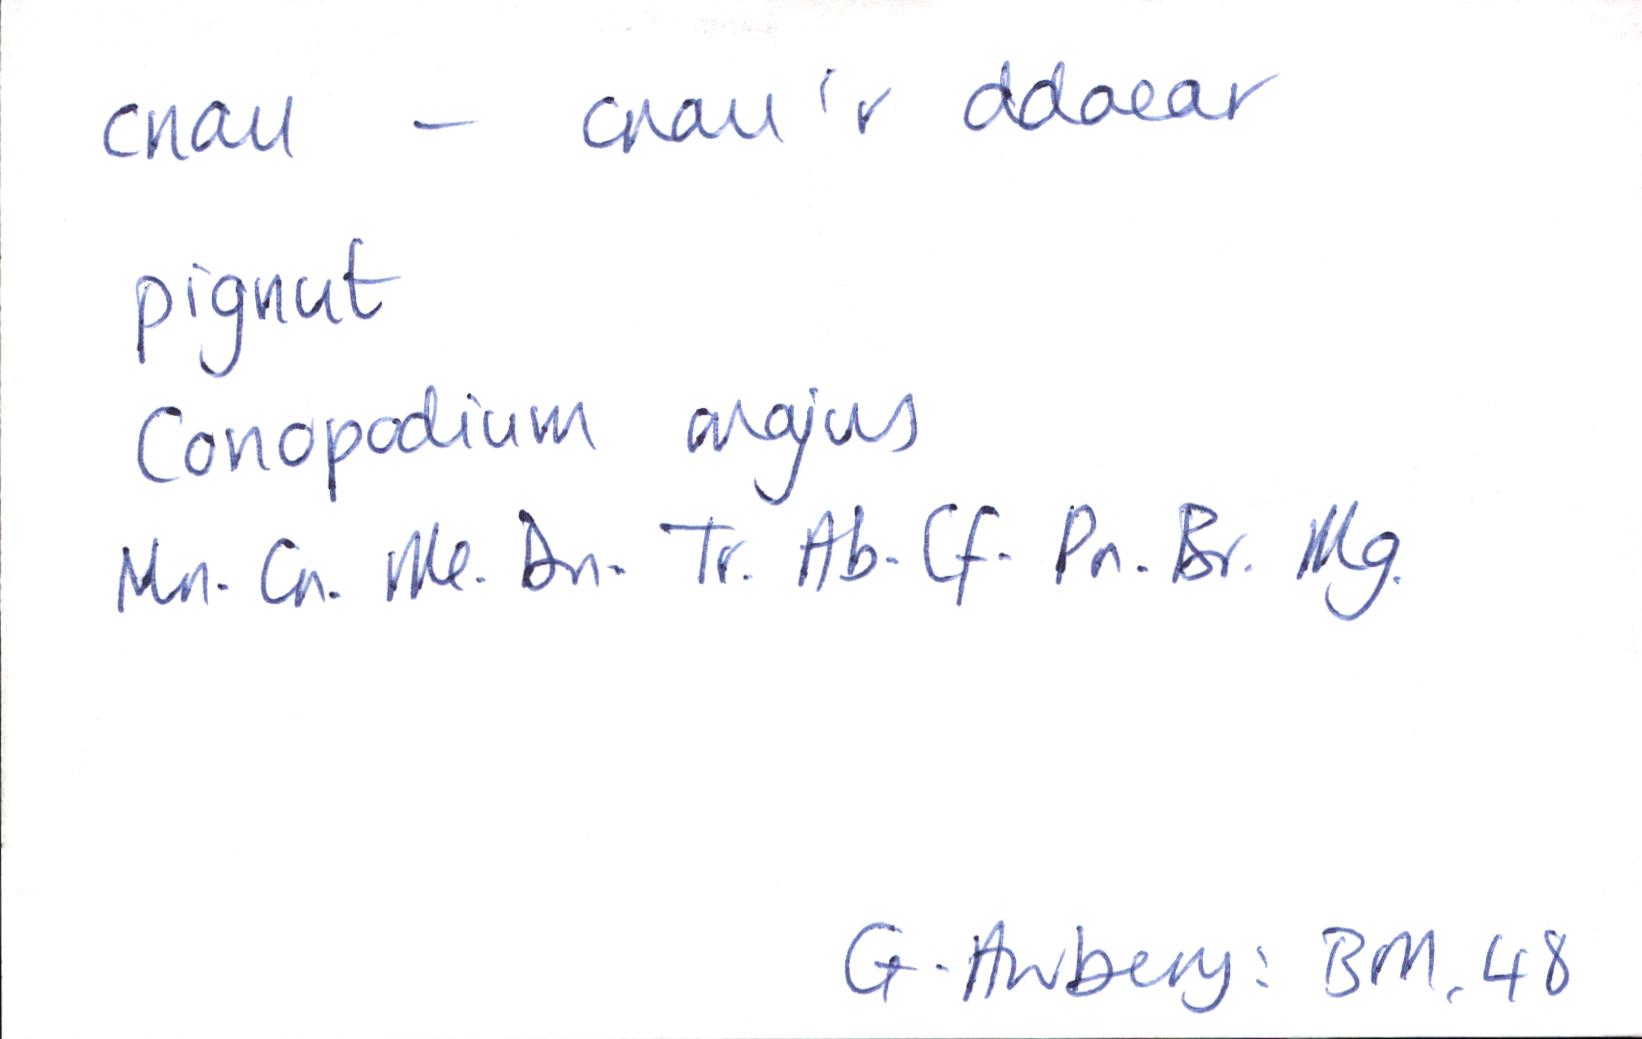 cnau - cnau'r ddaear
pignut
Conopodium majus
Mn. Cn. Me. Dn. Tr. Ab. Cf. Pn. Br. Mg.
G. Awbery: BM. 48